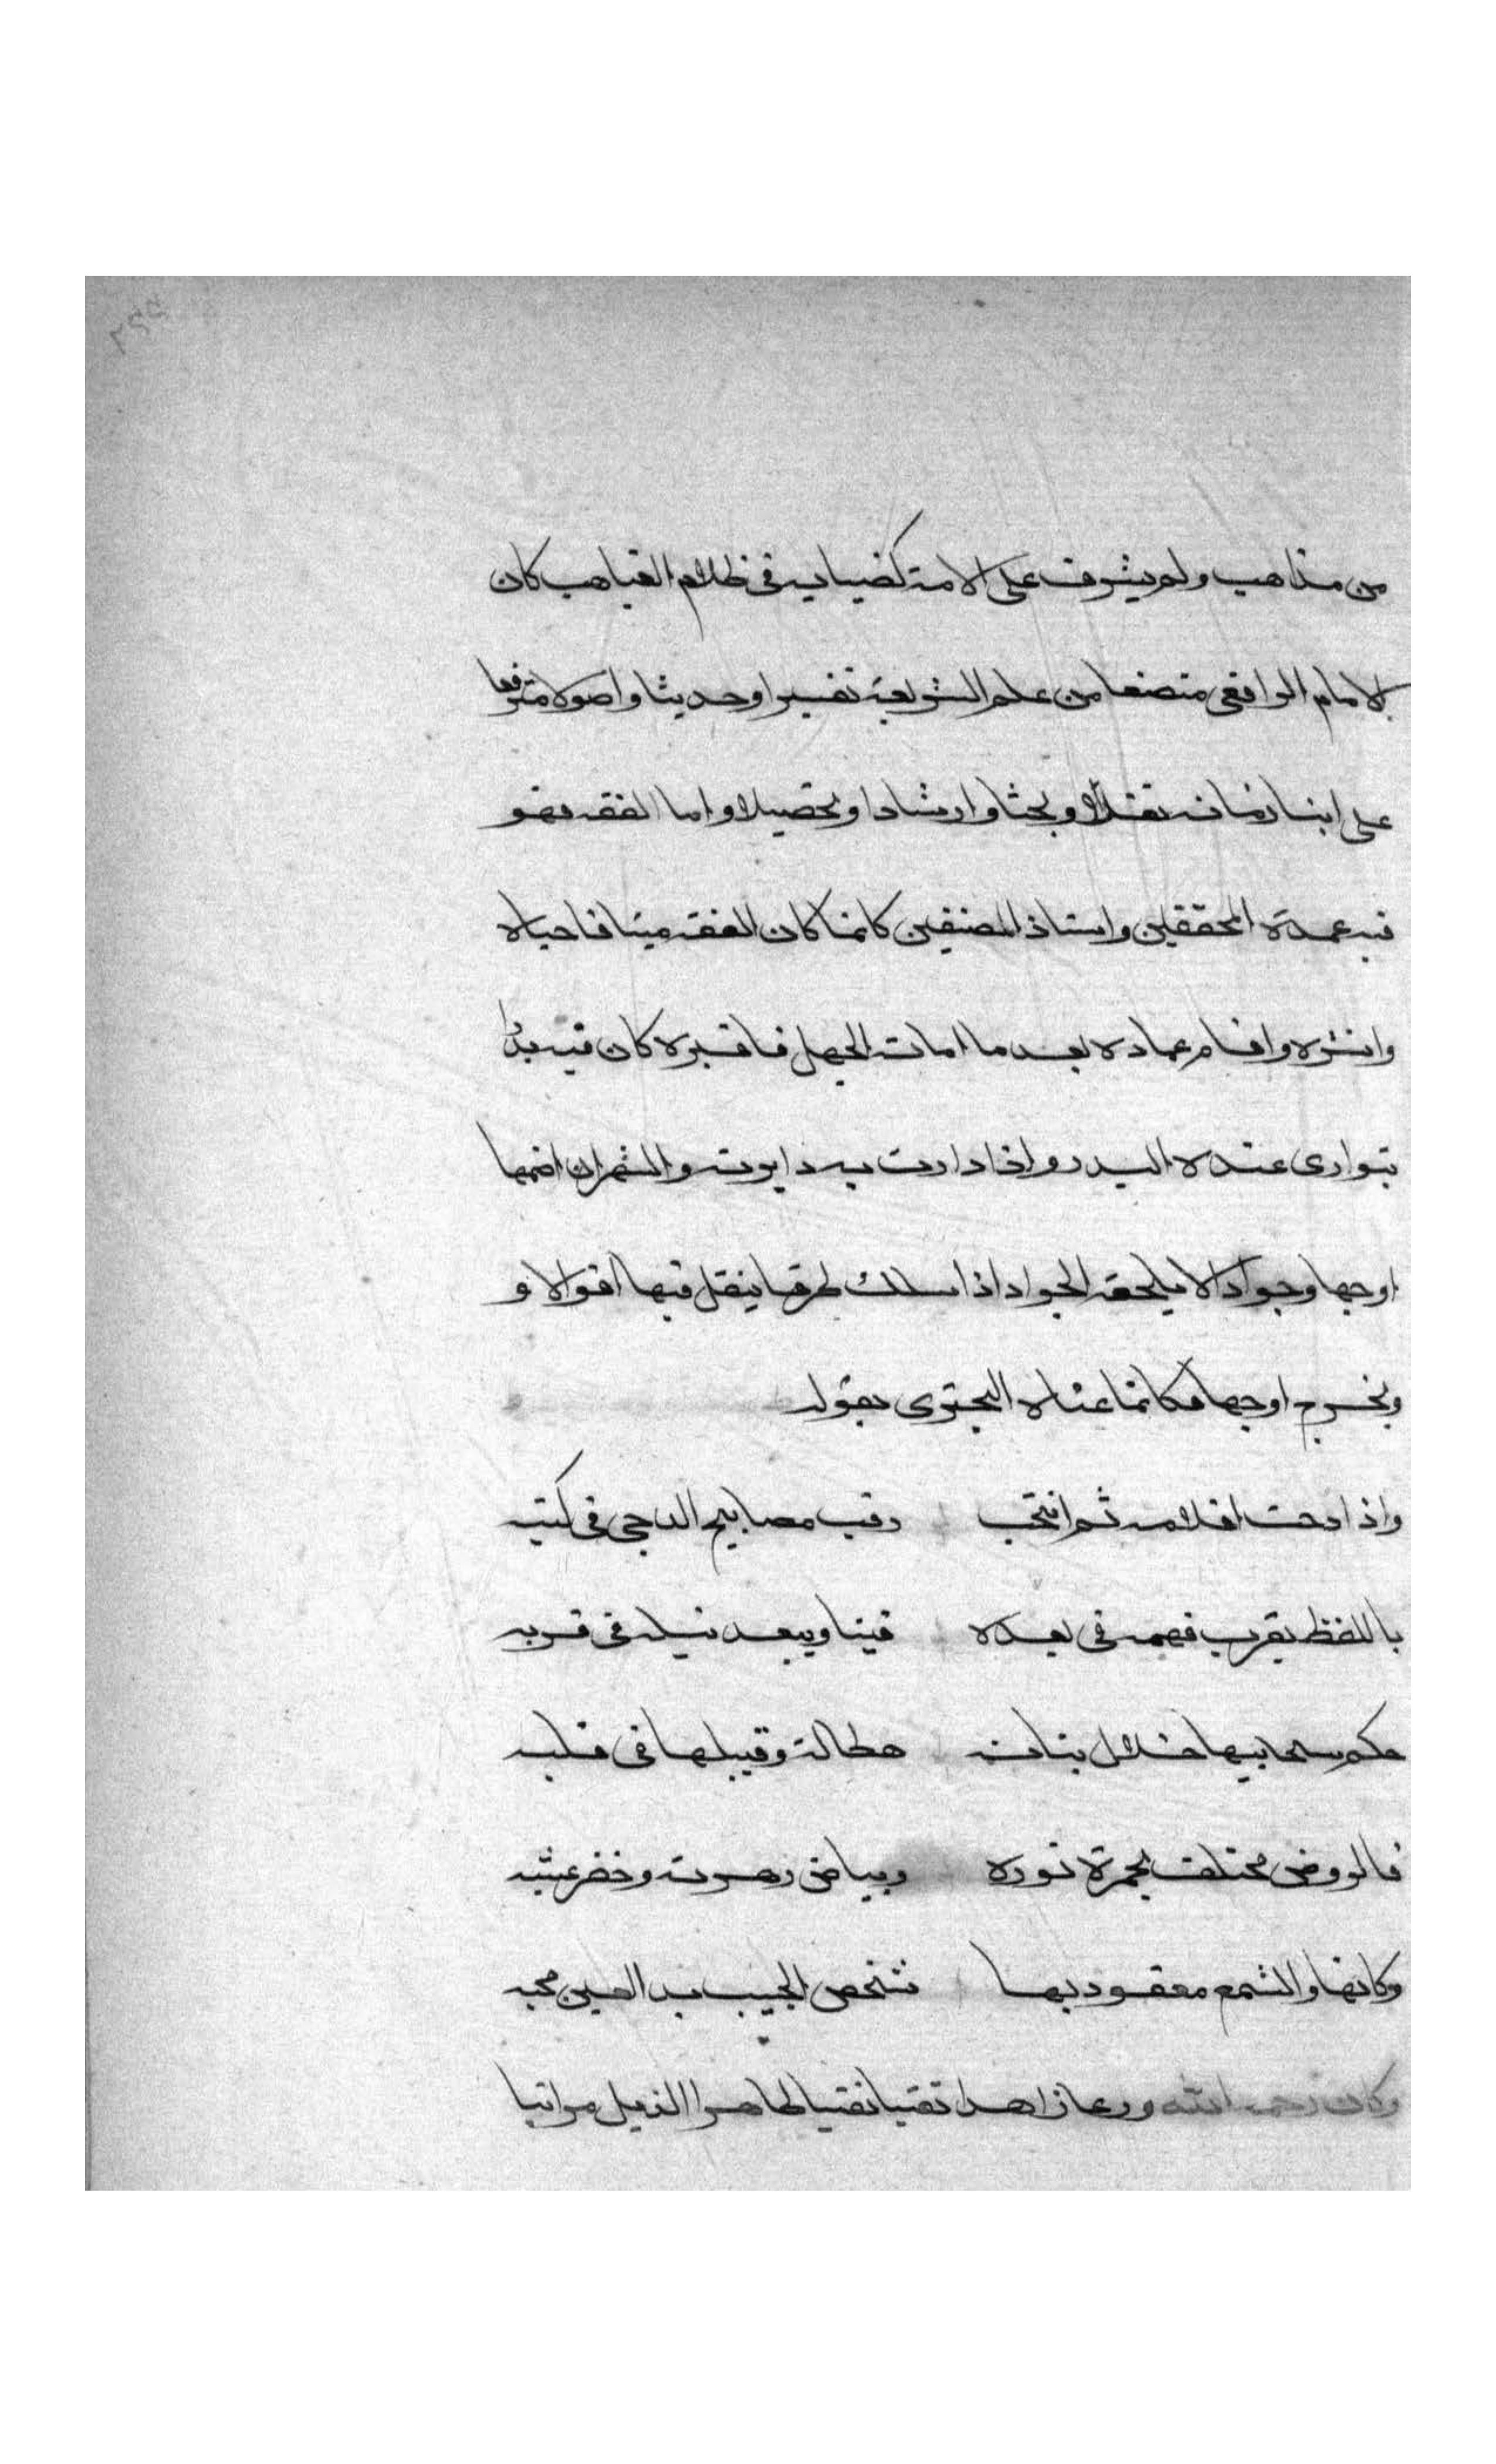 من مذاهب ولم يشرف على الامة كضيايه في ظلام الغياهب كان
الامام الرافعي متضلعا من علم الشريعة تفسيرا وحديثا واصولا مترفعا
على ابنا زمانه نقلا وبحثا وارشادا وتحصيلا واما الفقه فهو
فيه عمدة المحققين واستاذ المصنفين كانما كان الفقه ميتا فاحياه
وانشره واقام عماده بعد ما اماته الجهل فاقبره كان فيه بدرا
يتوارى عنده البدر واذا دارت به دايرته والشمس ان ضمها
اوجها وجوادا لا يلحقه الجواد اذا سلك طرقا ينقل فيها اقوالا و
ويخرج اوجها فكانما عناه البحتري بقوله
واذا دجت اقلامه ثم انتحت برقت مصابيح الدجى في كتبه
باللفظ يقرب فهمه في بعده فينا ويبعد نيله في قربه
حكم سحايبها خلال بنانه هطالة وقليبها في قلبه
فالروض مختلف بحمرة نوره وبياض زهرته وخضرة عشبه
وكانها والسمع معقود بها شخص الحبيب بدا لعين محبه
وكان رحمه الله ورعا زاهدا تقيا نقيا طاهر الذيل مراقبا